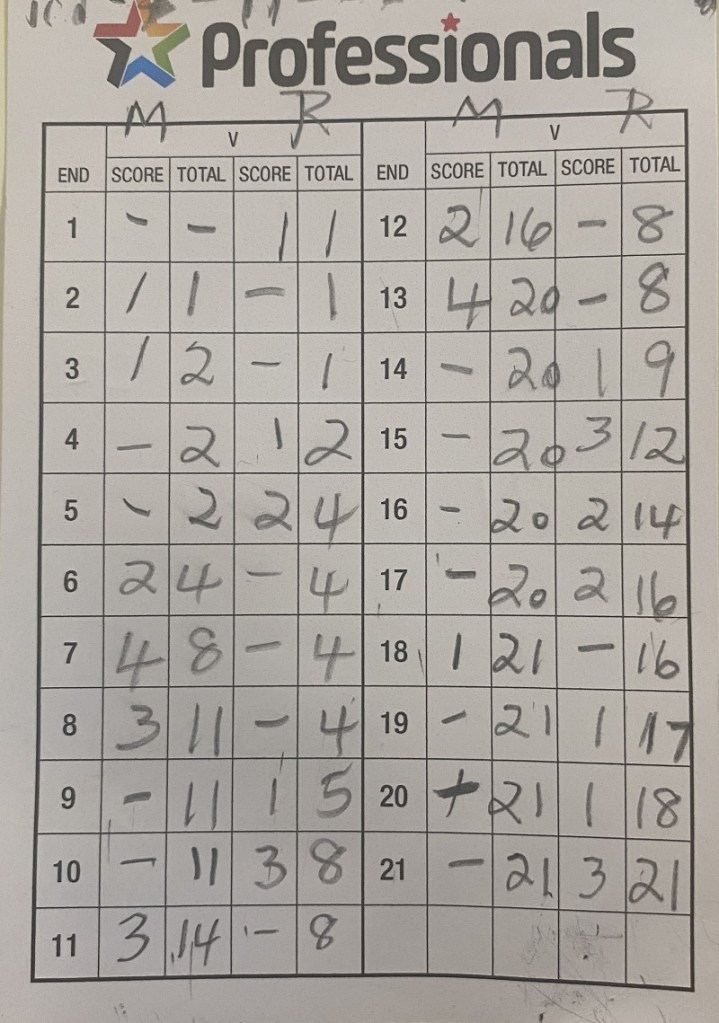 Professionals
M V R M V R
END SCORE TOTAL SCORE TOTAL END SCORE TOTAL SCORE TOTAL
1 - - 1 1 12 2 16 - 8
2 1 1 - 1 13 4 20 - 8
3 1 2 - 1 14 - 20 1 9
4 - 2 1 2 15 - 20 3 12
5 - 2 2 4 16 - 20 2 14
6 2 4 - 4 17 - 20 2 16
7 4 8 - 4 18 1 21 - 16
8 3 11 - 4 19 - 21 1 17
9 - 11 1 5 20 + 21 1 18
10 - 11 3 8 21 - 21 3 21
11 3 14 - 8